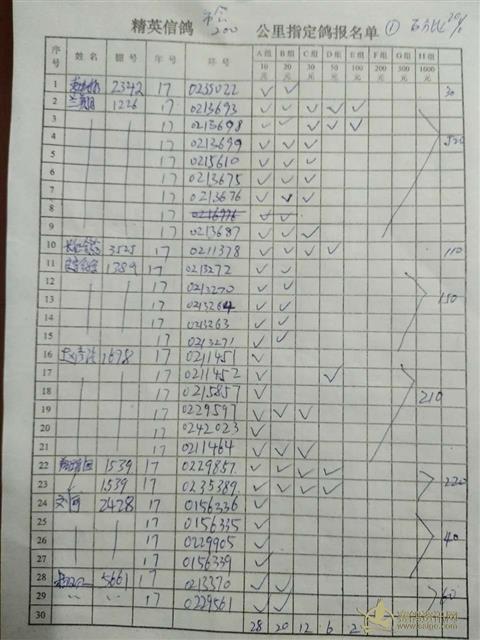 精英信鸽 200 公里指定鸽报名单 ① 20%
序号 姓名 棚号 年号 环号 A组10元 B组20元 C组30元 D组50元 E组100元 F组200元 G组300元 H组1000元
1 2342 17 0235022 ✓ ✓ 30
2 1226 17 0213693 ✓ ✓ ✓ ✓ ✓
3 17 0213698 ✓ ✓ ✓ ✓ ✓
4 17 0213699 ✓ ✓ ✓
5 17 0215610 ✓ ✓ ✓
6 17 0213675 ✓ ✓ ✓
7 17 0213676 ✓ ✓ ✓
8 ✓ ✓
9 17 0213687 ✓ ✓ ✓
10 3525 17 0211378 ✓ ✓ ✓ ✓ 110
11 1389 17 0213272 ✓ ✓
12 17 0213270 ✓ ✓
13 17 0213264 ✓ ✓ 150
14 17 0213263 ✓ ✓
15 17 0213271 ✓ ✓
16 1678 17 0211451 ✓
17 17 0211452 ✓ ✓
18 17 0215857 ✓ 210
19 17 0229597 ✓ ✓ ✓
20 17 0242023 ✓
21 17 0211464 ✓ ✓ ✓
22 1539 17 0229857 ✓ ✓ ✓ ✓
23 1539 17 0235389 ✓ ✓ ✓ ✓ 220
24 2428 17 0156336 ✓
25 17 0156335 ✓
26 17 0229905 ✓ 40
27 17 0156339 ✓
28 5661 17 0213370 ✓ ✓
29 0229561 ✓ ✓ 60
30
28 20 12 6 2